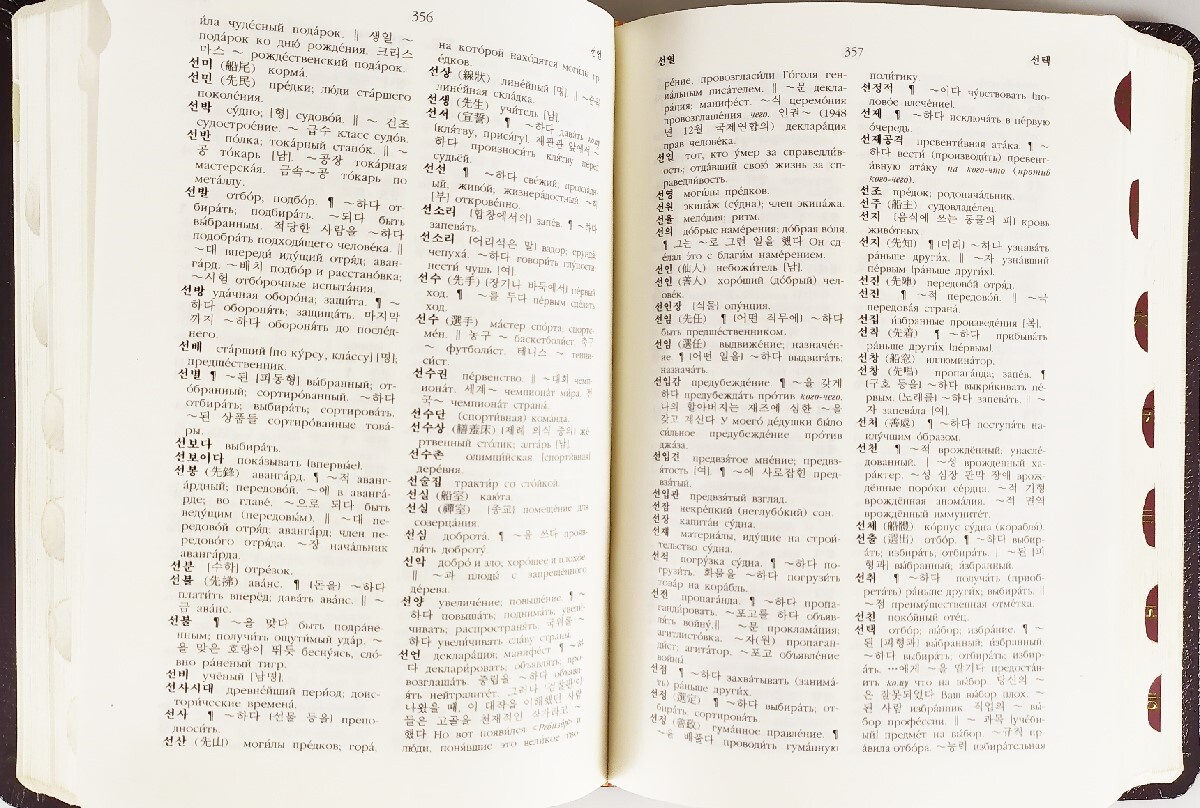 356
и́ла чуде́сный пода́рок. ‖ 생일 ~
пода́рок ко дню́ рожде́ния. 크리스
마스 ~ рожде́ственский пода́рок.
선미 (船尾) корма́.
선민 (先民) пре́дки; лю́ди ста́ршего
поколе́ния.
선박 су́дно; [형] судово́й. ‖ ~ 건조
судострое́ние. ~ 급수 класс судо́в.
선반 по́лка; тока́рный стано́к. ‖ ~
공 то́карь [남]. ~공장 тока́рная
мастерска́я. 금속~공 то́карь по
мета́ллу.
선발 отбо́р, подбо́р. ¶ ~하다 от-
бира́ть; подбира́ть. ~되다 быть
вы́бранным. 적당한 사람을 ~하다
подобра́ть подходя́щего челове́ка. ‖
~대 впереди́ иду́щий отря́д; аван-
га́рд. ~배치 подбо́р и расстано́вка;
~시험 отбо́рочные испыта́ния.
선방 уда́чная оборо́на; защи́та. ¶ ~
하다 обороня́ть; защища́ть. 마지막
까지 ~하다 обороня́ть до после́д-
него.
선배 ста́рший [по ку́рсу, кла́ссу] [명];
предше́ственник.
선별 ¶ ~된 [피동형] вы́бранный; от-
о́бранный; сортиро́ванный. ~하다
отбира́ть; выбира́ть; сортирова́ть.
~된 상품들 сортиро́ванные това́-
ры.
선보다 выбира́ть.
선보이다 пока́зывать [впервы́е].
선봉 (先鋒) аванга́рд. ¶ ~적 аван-
га́рдный; передово́й. ~에 в аванга́-
рде; во главе́. ~으로 되다 быть
веду́щим (передовы́м). ‖ ~대 пе-
редово́й отря́д; аванга́рд; член пе-
редово́го отря́да. ~장 нача́льник
аванга́рда.
선분 [수학] отре́зок.
선불 (先拂) ава́нс. ¶ [돈을] ~하다
плати́ть вперёд; дава́ть ава́нс. ‖ ~
금 ава́нс.
선불 ¶ ~을 맞다 быть подра́не-
нным; получи́ть ощути́мый уда́р. ~
을 맞은 호랑이 뛰듯 бесну́ясь, сло́-
вно ра́неный тигр.
선비 учёный [남명].
선사시대 древне́йший пери́од; доис-
тори́ческие времена́.
선사 ¶ ~하다 [선물 등을] препо-
дноси́ть.
선산 (先山) моги́лы пре́дков; гора́,
на кото́рой нахо́дятся моги́лы пр
е́дков.
선상 (線狀) лине́йный
лине́йная скла́дка.
선생 (先生) учи́тель [남].
선서 (宣誓) ¶ ~하다 дава́ть
(кля́тву, прися́гу). 재판관 앞에서 ~
하다 произноси́ть кля́тву пе́ред
судьёй.
선선 ¶ ~하다 све́жий, прохла́дн
ый, живо́й, жизнера́достный
[부] открове́нно.
선소리 [합창에서의] запе́в. ¶ ~하다
запева́ть.
선소리 [어리석은 말] вздор; ерунда́;
чепуха́. ~하다 говори́ть глу́пости;
нести́ чушь [여].
선수 (先手) [장기나 바둑에서] пе́рвый
ход. ¶ ~를 두다 пе́рвым сде́лать
ход.
선수 (選手) ма́стер спо́рта, спортс-
ме́н. ‖ 농구 ~ баскетболи́ст. 축구
~ футболи́ст. 테니스 ~ тенни-
си́ст.
선수권 пе́рвенство. ‖ ~대회 чемп-
иона́т. 세계~ чемпиона́т ми́ра. 전
국~ чемпиона́т страны́.
선수단 (спорти́вная) кома́нда.
선수상 [제례 의식 중의] же́-
ртвенный сто́лик; алта́рь [남].
선수촌 олимпи́йская (спорти́вная)
дере́вня.
선술집 тракти́р со сто́йкой.
선실 (船室) каю́та.
선실 (禪室) [종교] помеще́ние для
созерца́ния.
선심 доброта́. ¶ ~을 쓰다 проя-
вля́ть доброту́.
선악 добро́ и зло, хоро́шее и плохо́е.
‖ ~과 плоды́ с запре́щенного
де́рева.
선양 увеличе́ние; повыше́ние. ¶ ~
하다 повыша́ть; поднима́ть, увели-
чивать; распространя́ть. 국위를 ~
하다 увели́чивать сла́ву страны́.
선언 деклара́ция; манифе́ст ¶ ~하
다 деклари́ровать; объявля́ть; про-
возглаша́ть. 중립을 ~하다 объяв-
ля́ть нейтралите́т. 그러나
나왔을 때, 이 대작을 이해했던 사람
들은 고골을 천재적인 작가라고 ~
했다 Но вот появи́лся «Ревизо́р» и
лю́ди, поня́вшие э́то вели́кое тво-
357
선얼
선택
ре́ние, провозгласи́ли Го́голя ген-
иа́льным писа́телем. ‖ ~문 декла-
ра́ция; манифе́ст. ~식 церемо́ния
провозглаше́ния чего. 인권~ (1948
년 12월 국제연합의) деклара́ция
прав челове́ка.
선열 тот, кто у́мер за справедли́в-
ость; отда́вший свою́ жизнь за сп-
раведли́вость.
선영 моги́лы пре́дков.
선원 экипа́ж (су́дна); член экипа́жа.
선율 мело́дия; ритм.
선의 до́брые наме́рения; до́брая во́ля.
¶ 그는 ~로 그런 일을 했다 Он сд-
е́лал э́то с благи́м наме́рением.
선인 (仙人) небожи́тель [남].
선인 (善人) хоро́ший (до́брый) чел-
ове́к.
선인장 [식물] опу́нция.
선임 (先任) ¶ [어떤 직무에] ~하다
быть предше́ственником.
선임 (選任) выдвиже́ние; назначе́н-
ие. ¶ [어떤 일을] ~하다 выдвига́ть;
назнача́ть.
선입감 предубежде́ние. ¶ ~을 갖게
하다 предубежда́ть про́тив кого-чего.
나의 할아버지는 재즈에 심한 ~을
갖고 계신다 У моего́ де́душки бы́ло
си́льное предубежде́ние про́тив
джа́за.
선입견 предвзя́тое мне́ние; предвз-
я́тость [여]. ¶ ~에 사로잡힌 пред-
взя́тый.
선입관 предвзя́тый взгляд.
선잠 некре́пкий (неглубо́кий) сон.
선장 капита́н су́дна.
선재 материа́лы, иду́щие на строи́-
тельство су́дна.
선적 погру́зка су́дна. ¶ ~하다 по-
грузи́ть. 화물을 ~하다 погрузи́ть
това́р на кора́бль.
선전 пропага́нда. ¶ ~하다 пропа-
ганди́ровать. ~포고를 하다 объяв-
и́ть войну́. ‖ ~문 проклама́ция;
агитлисто́вка. ~자(원) пропаган-
ди́ст; агита́тор. ~포고 объявле́ние
войны́.
선점 ¶ ~하다 захва́тывать (занима́-
ть) ра́ньше други́х.
선정 (選定) ¶ ~하다 выбира́ть; от-
бира́ть, сортирова́ть
선정 (善政) гума́нное правле́ние. ¶
~을 베풀다 проводи́ть гума́нную
поли́тику.
선정적 ¶ ~이다 чу́вствовать [по-
лово́е влече́ние].
선제 ¶ ~하다 исключа́ть в пе́рвую
о́чередь.
선제공격 превенти́вная ата́ка. ¶ ~
하다 вести́ (производи́ть) превент-
и́вную ата́ку на кого-что (против
кого-чего).
선조 пре́док; родонача́льник.
선주 (船主) судовладе́лец.
선지 (음식에 쓰는 동물의 피) кровь
живо́тных
선지 (先知) ¶ [미리] ~하다 узнава́ть
ра́ньше други́х. ‖ ~자 узна́вший
пе́рвым (ра́ньше други́х).
선진 (先陣) передово́й отря́д.
선진 ¶ ~적 передово́й. ‖ ~국
передова́я страна́.
선집 и́збранные произведе́ния [복].
선착 (先着) ¶ ~하다 прибыва́ть
ра́ньше други́х (пе́рвым).
선창 (船窓) иллюмина́тор.
선창 (先唱) пропага́нда; запе́в. ¶
[구호 등을] ~하다 выкри́кивать пе́-
рвым. [노래를] ~하다 запева́ть. ‖ ~
자 запева́ла [여].
선처 (善處) ¶ ~하다 поступа́ть на-
илу́чшим о́бразом.
선천 ¶ ~적 врождённый; унасле́-
дованный. ‖ ~성 врождённый ха-
ра́ктер. ~성 심장 판막 장애 врож-
дённые поро́ки се́рдца. ~적 기형
врождённая анома́лия. ~적 면역
врождённый иммуните́т.
선체 (船體) ко́рпус су́дна (корабля́).
선출 (選出) отбо́р. ¶ ~하다 выбир-
а́ть; избира́ть, отбира́ть. ‖ ~된 [피
형과] вы́бранный, и́збранный.
선취 ¶ ~하다 получа́ть (приоб-
рета́ть) ра́ньше други́х; выбира́ть. ‖
~점 преиму́щественная отме́тка.
선친 поко́йный оте́ц.
선택 отбо́р; вы́бор; избра́ние. ¶ ~
된 [피형과] вы́бранный, и́збранный.
~하다 выбира́ть, отбира́ть; избир-
а́ть. …에게 ~을 맡기다 предоста́в-
ить кому что на вы́бор. 당신의 ~
은 잘못되었다 Ваш вы́бор плох. ~
된 사람 избра́нник 직업의 ~ вы-
бор профе́ссии. ‖ ~ 과목 [уче́бн-
ый] предме́т на вы́бор. ~규칙 пр-
а́вила отбо́ра. ~능력 избира́тельная